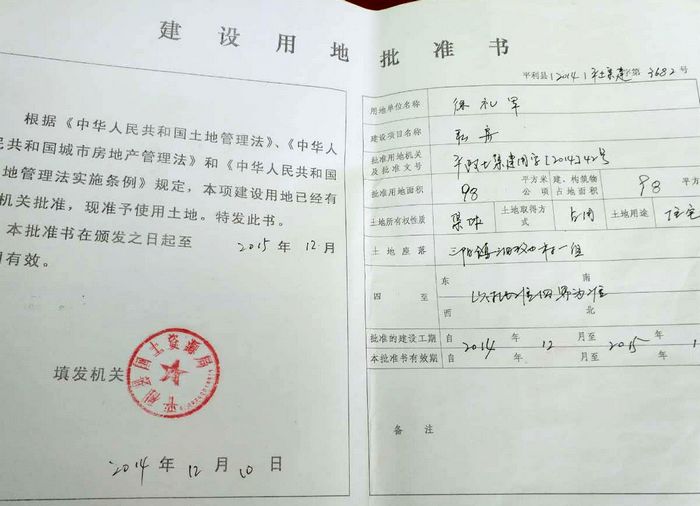 建设用地批准书
根据《中华人民共和国土地管理法》、《中华人
民共和国城市房地产管理法》和《中华人民共和国
地管理法实施条例》规定,本项建设用地已经有
机关批准,现准予使用土地。特发此书。
本批准书在颁发之日起至 2015 年 12 月
有效。
平利县国土资源局
填发机关
2014 年 12 月 10 日
平利县(2014)平土集建字第3682号
用地单位名称 徐礼军
建设项目名称 私房
批准用地机关及批准文号 平政土集建用字[2014]42号
批准用地面积 98 平方米 公顷 建、构筑物占地面积 98 平方
土地所有权性质 集体 土地取得方式 占用 土地用途 住宅
土地座落 三阳镇 村一组
四至 东 南 西 北 以 四界为准
批准的建设工期 自 2014 年 12 月至 2015 年 1
本批准书有效期 自 年 月至 年
备注